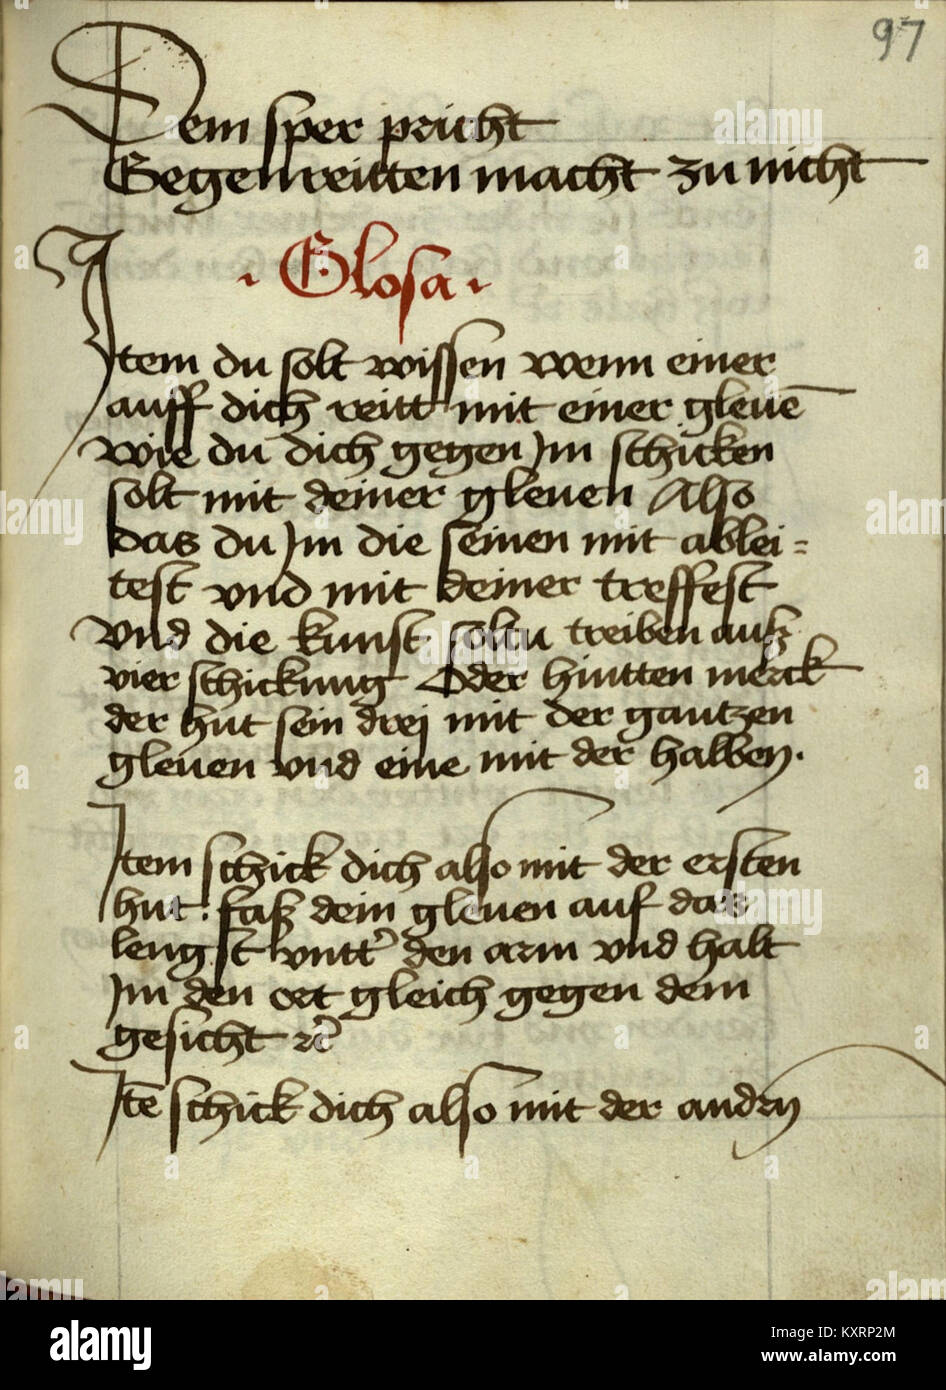 97
Dem sper pricht
Gegenreitten macht zu nicht
· Glosa ·
Jtem du solt wissen wenn einer
auff dich reitt mit einer gleuē
wie du dich gegen Jm schicken
solt mit deiner gleuen Also
das du Jm die seinen mit ablei=
test vnd mit deiner treffest
Vnd die kunst soltu treiben auß
vier schickung Oder hintten merck
der hut sein drej mit der gantzen
gleuen vnd eine mit der halben·
Jtem schick dich also mit der ersten
hut: faß dein gleuen auf das
lengst vntt' den arm vnd halt
Jm den ort gleich gegen dem
gesicht ꝛc
Jtē schick dich also mit der andn
alamy
Image ID: KXRP2M
www.alamy.com